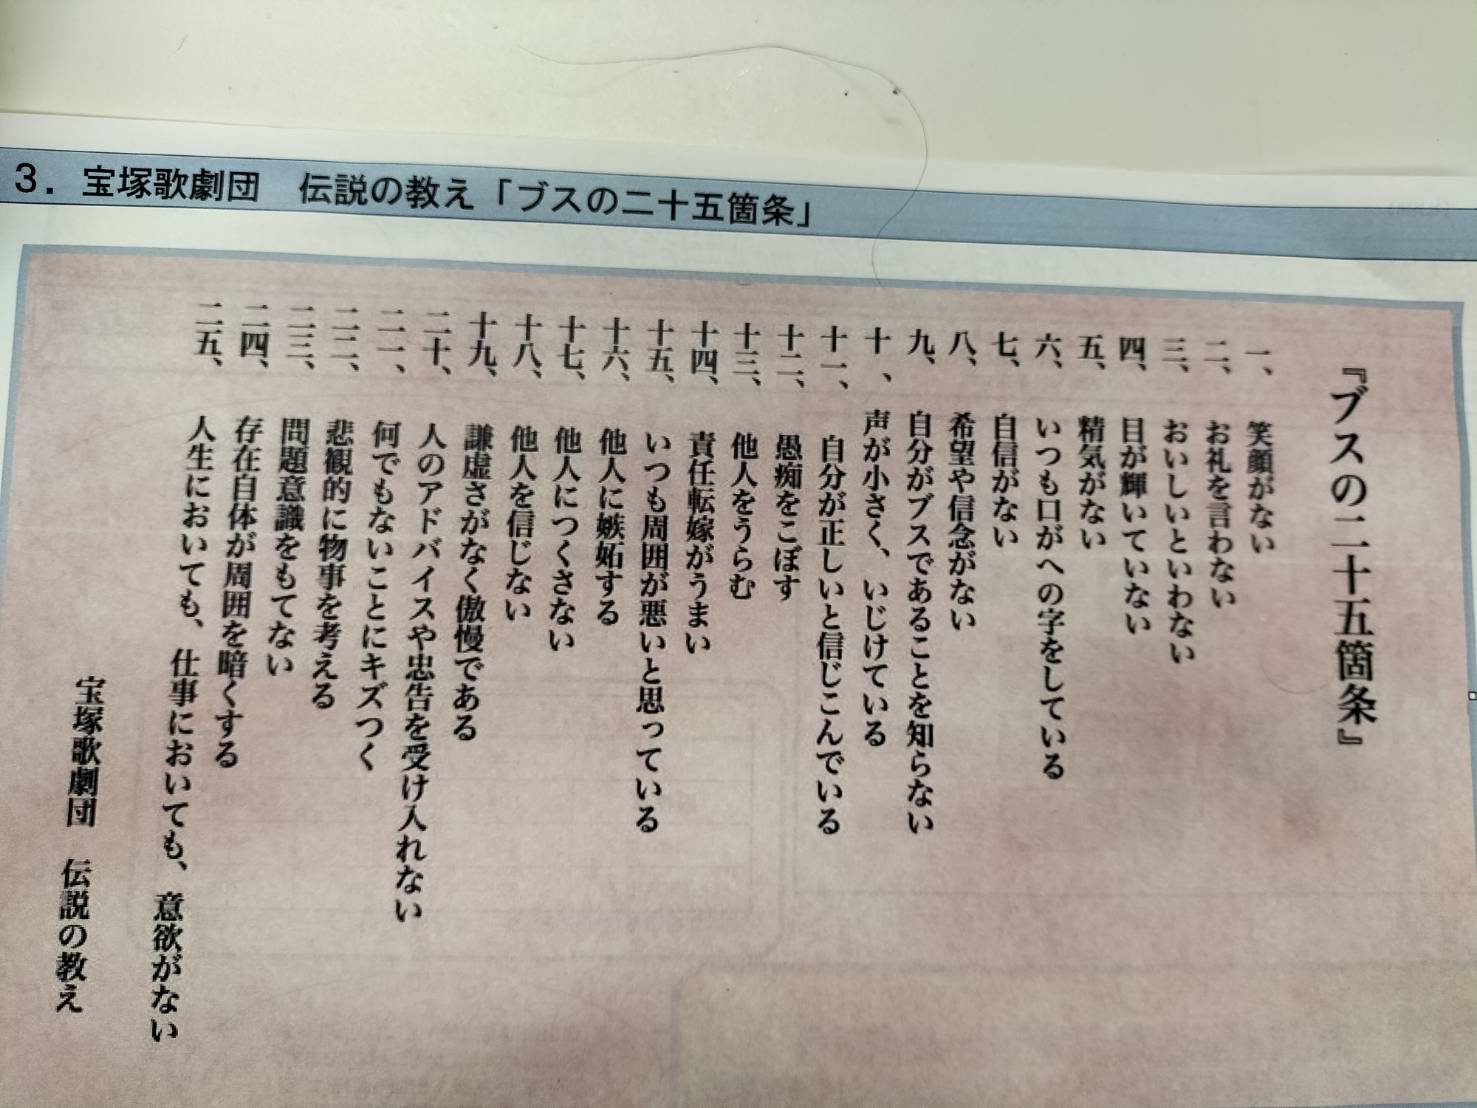 3．宝塚歌劇団　伝説の教え「ブスの二十五箇条」
『ブスの二十五箇条』
一、笑顔がない
二、お礼を言わない
三、おいしいといわない
四、目が輝いていない
五、精気がない
六、いつも口がへの字をしている
七、自信がない
八、希望や信念がない
九、自分がブスであることを知らない
十、声が小さく、いじけている
十一、自分が正しいと信じこんでいる
十二、愚痴をこぼす
十三、他人をうらむ
十四、責任転嫁がうまい
十五、いつも周囲が悪いと思っている
十六、他人に嫉妬する
十七、他人につくさない
十八、他人を信じない
十九、謙虚さがなく傲慢である
二十、人のアドバイスや忠告を受け入れない
二一、何でもないことにキズつく
二二、悲観的に物事を考える
二三、問題意識をもてない
二四、存在自体が周囲を暗くする
二五、人生においても、仕事においても、意欲がない
宝塚歌劇団　伝説の教え